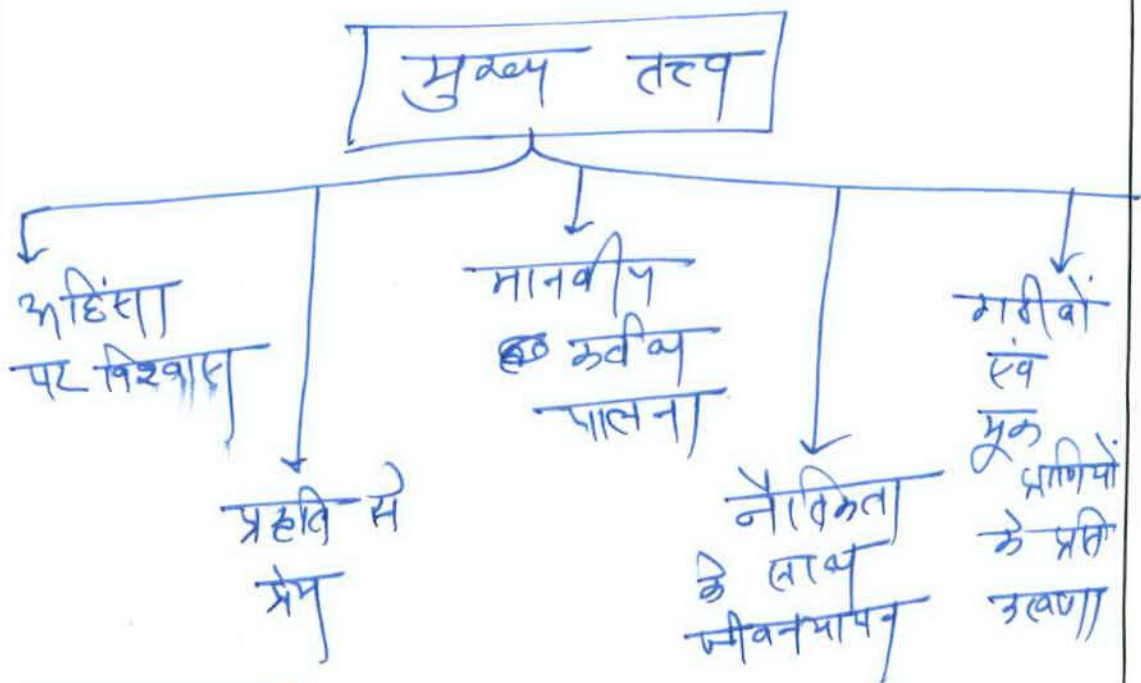 मुख्य तत्त्व
अहिंसा
पर विश्वास
प्रकृति से
प्रेम
मानवीय
कर्तव्य
पालना
नैतिकता
के साथ
जीवनयापन
गरीबों
एवं
मूक
प्राणियों
के प्रति
करुणा